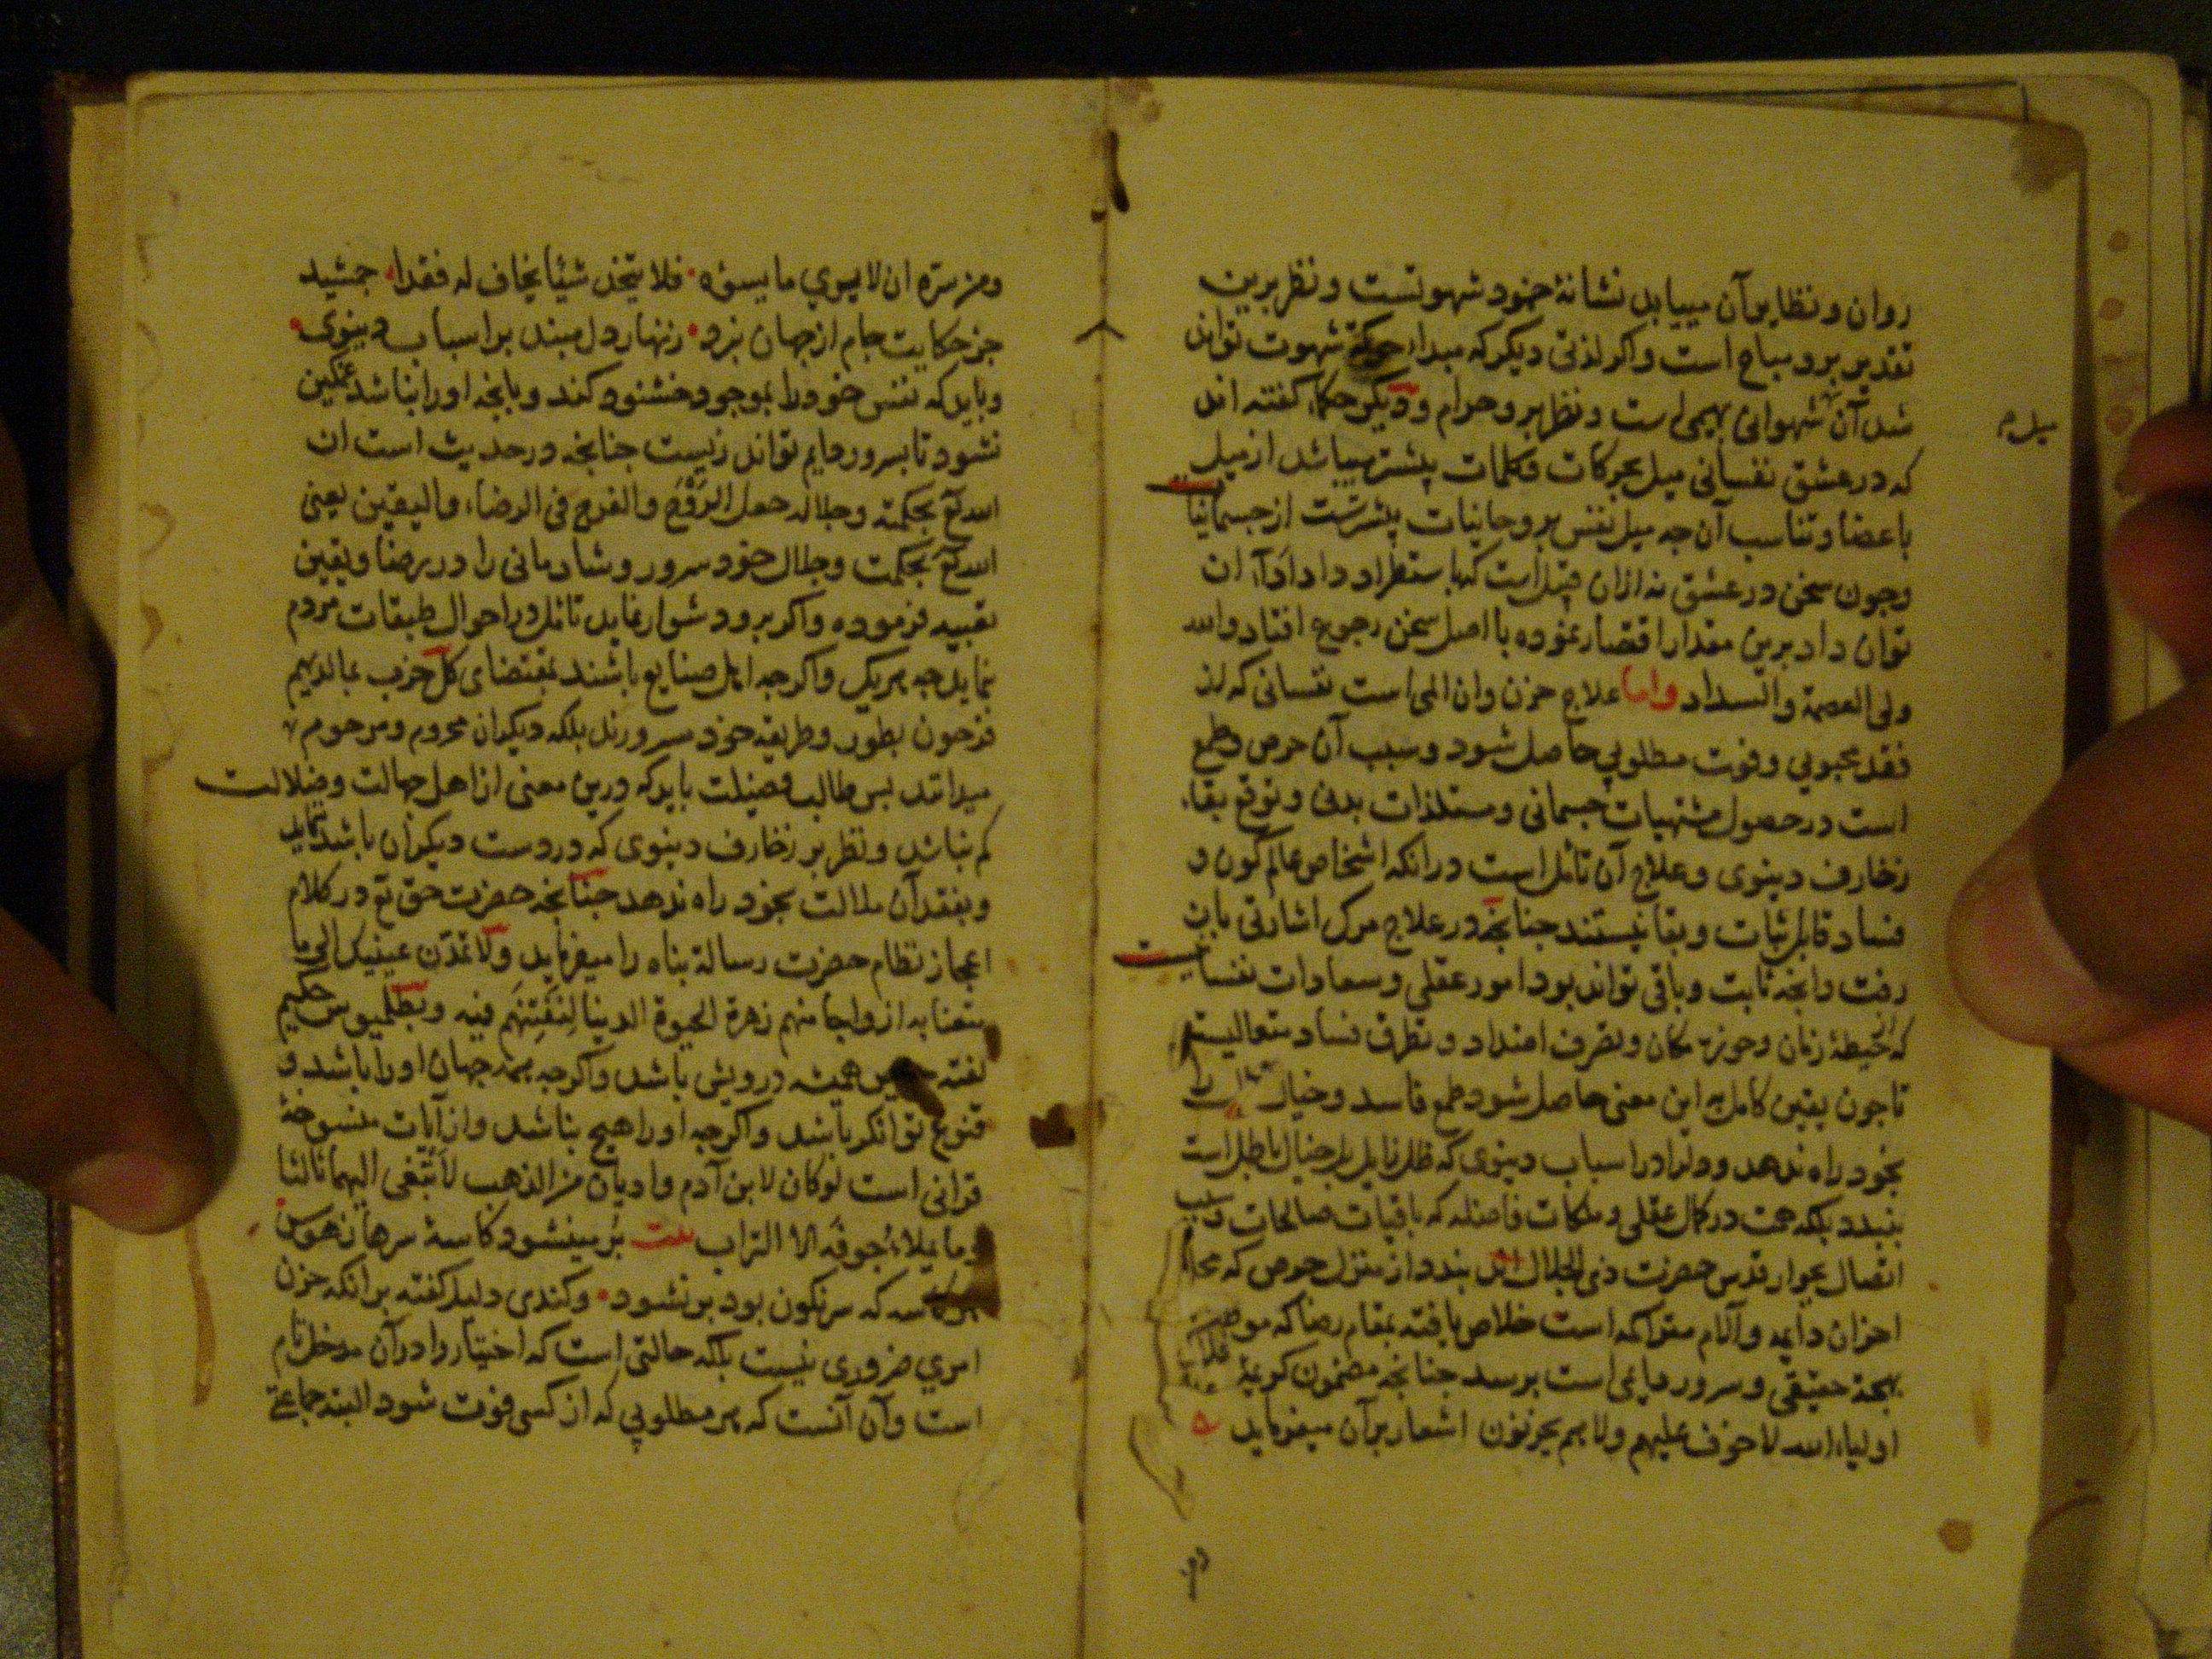 روان و نظایر آن مییابد نشانهٔ جنود شهوتست و نظر برین
تقدیر برو مباح است واکر لذتی دیکر که مبدا حرکة شهوت تواند
شد آن شهوانی بهیمی است ونظر برو حرام و دیکر حکما گفته اند
که در عشق نفسانی میل بحرکات و کلمات بیشتر میباشد از میل
باعضا و تناسب آن چه میل نفس بروحانیات بیشترست از جسمانیا
وجون سخن در عشق نه ازان قبیل است که باستطراد داد ادآء ان
توان داد برین مقدار اقتصار نموده بااصل سخن رجوع افتاد والله
ولی العصمة والسداد واما علاج حزن وان المی است نفسانی که از
فقد محبوبی وفوت مطلوبی حاصل شود وسبب آن حرص وطمع
است در حصول مشتهیات جسمانی ومستلذات بدنی و توقع بقاء
زخارف دینوی وعلاج آن تأمل است درانکه اشخاص عالم کون و
فساد قابل ثبات وبقا نیستند جنانجه در علاج مرک اشارتی بان
رفت وانجه ثابت وباقی تواند بود امور عقلی وسعادات نفسا نیست
که از حیطهٔ زمان وحوزهٔ مکان وتصرف اضداد و تطرق فساد متعالیست
تاجون یقین کامل به این معنی حاصل شود طمع فاسد وخیال
بخود راه ندهد و دلرا در اسباب دینوی که ظل زایل یا خیال باطل است
نبندد بلکه همت در کمال عقلی وملکات فاضله که باقیات صالحات وسبب
اتصال بجوار قدس حضرت ذی الجلال اند بندد واز منزل حرص که محل
احزان دایمه وآلام متراکمه است خلاص یافته بمقام رضا که موطن
بهجة حقیقی وسرور دایمی است برسد جنانجه مضمون کریمهٔ
اولیاء الله لا خوف علیهم ولا هم یحزنون اشعار برآن میفرماید
میل
ومن سرّه ان لا یری ما یسؤه فلا یتخذ شیئا یخاف له فقدا جمشید
جز حکایت جام از جهان نبرد زنهار دل مبند بر اسباب دینوی
وباید که نفس خود را بموجود خشنود کند وبانجه اورا نباشد غمکین
نشود تا بسرور دایم تواند زیست جنانجه در حدیث است ان
الله تع بحکمته وجلاله جعل الرَوْح والفرح فی الرضاء والیقین یعنی
الله تع بحکمت وجلال خود سرور وشادمانی را در رضا ویقین
تعبیه فرموده واکر برو دشوار نماید تأمل در احوال طبقات مردم
نماید جه هریک واکرجه اهل صنایع باشند بمقتضای کل حزب بما لدیهم
فرحون بطور وطریقه خود مسرورند بلکه دیکران محروم ومرحوم
میدانند بس طالب فضیلت باید که درین معنی از اهل جهالت وضلالت
کم نباشد ونظر بر زخارف دینوی که در دست دیکران باشد ننماید
وبفقد آن ملالت بخود راه ندهد جنانجه حضرت حق تع در کلام
اعجاز نظام حضرت رسالة بناه را میفرماید ولا تمدّن عینیک الی ما
متعنا به ازواجا منهم زهرة الحیوة الدینا لنفتنهم فیه وبطلمیوس حکیم
کفته همیشه درویش باشد واکرجه همه جهان اورا باشد و
قنوع توانکر باشد واکرجه اورا هیج نباشد واز آیات منسوخهٔ
قرانی است لوکان لابن آدم وادیان من الذهب لابتغی الیهما ثالثا
وما یملاء جوفه الا التراب بیت بر مینشود کاسهٔ سرها ز هوس
هر کاسه که سرنکون بود بر نشود وکندی دلیل کفته برانکه حزن
امری ضروری نیست بلکه حالتی است که اختیار را درآن مدخل تام
است وآن آنست که هر مطلوبی که از کسی فوت شود البته جماعتی